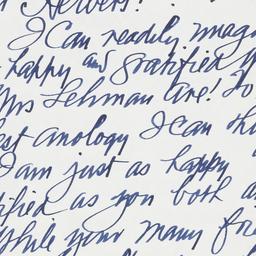 Herbert:
I can readily imag
happy and gratified y
Mrs Lehman are! To
est analogy I can th
I am just as happy
ified as you both a
While your many frie